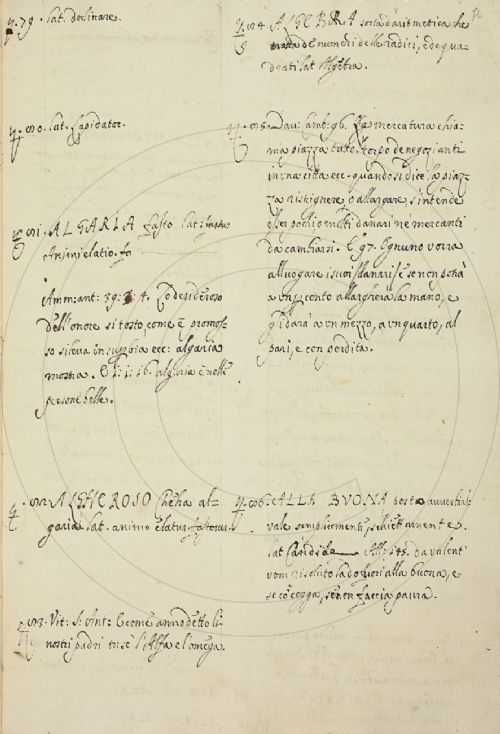 79. lat. declinare.
lat. Lapidator.
ALGARIA fasto lat. fastus
Animi elatio. fa
Amm: ant: 39: 4. Lo desideroso
dell'onore si tosto come è promos-
so si leva in superbia ecc: algaria
mostra. E 1: 1: 16. algaria è nelle
persone belle.
ALGHEROSO Che ha al-
garia lat. animo elatus. fastosus.
Vit: S: Ant: E come anno detto li
nostri padri tu se' l'Alfa e l'omega.
96
4 ALGEBRA sorta d'aritmetica che
tratta de numeri delle radici, e de qua-
drati lat Algebra.
Dav: camb: 96. La mercatura chia-
ma piazza tutto 'l corpo de negozianti
in una città ecc. quando si dice la piaz-
za ristignere, o allargare, s'intende
esser pochi o molti danari ne' mercanti
da cambiarsi. E 97. Ognuno vorrà
alluogare i suoi danari, e se non potrà
a un per cento allargherà la mano, e
gli darà a un mezzo, a un quarto, al
pari, e con perdita.
ALLA BUONA posto avverbial-
vale semplicemente, schiettamente.
lat Candide All: 145. da valent'
uom risoluto la do fuori alla buona, e
se coccogga, se non faccia paura.